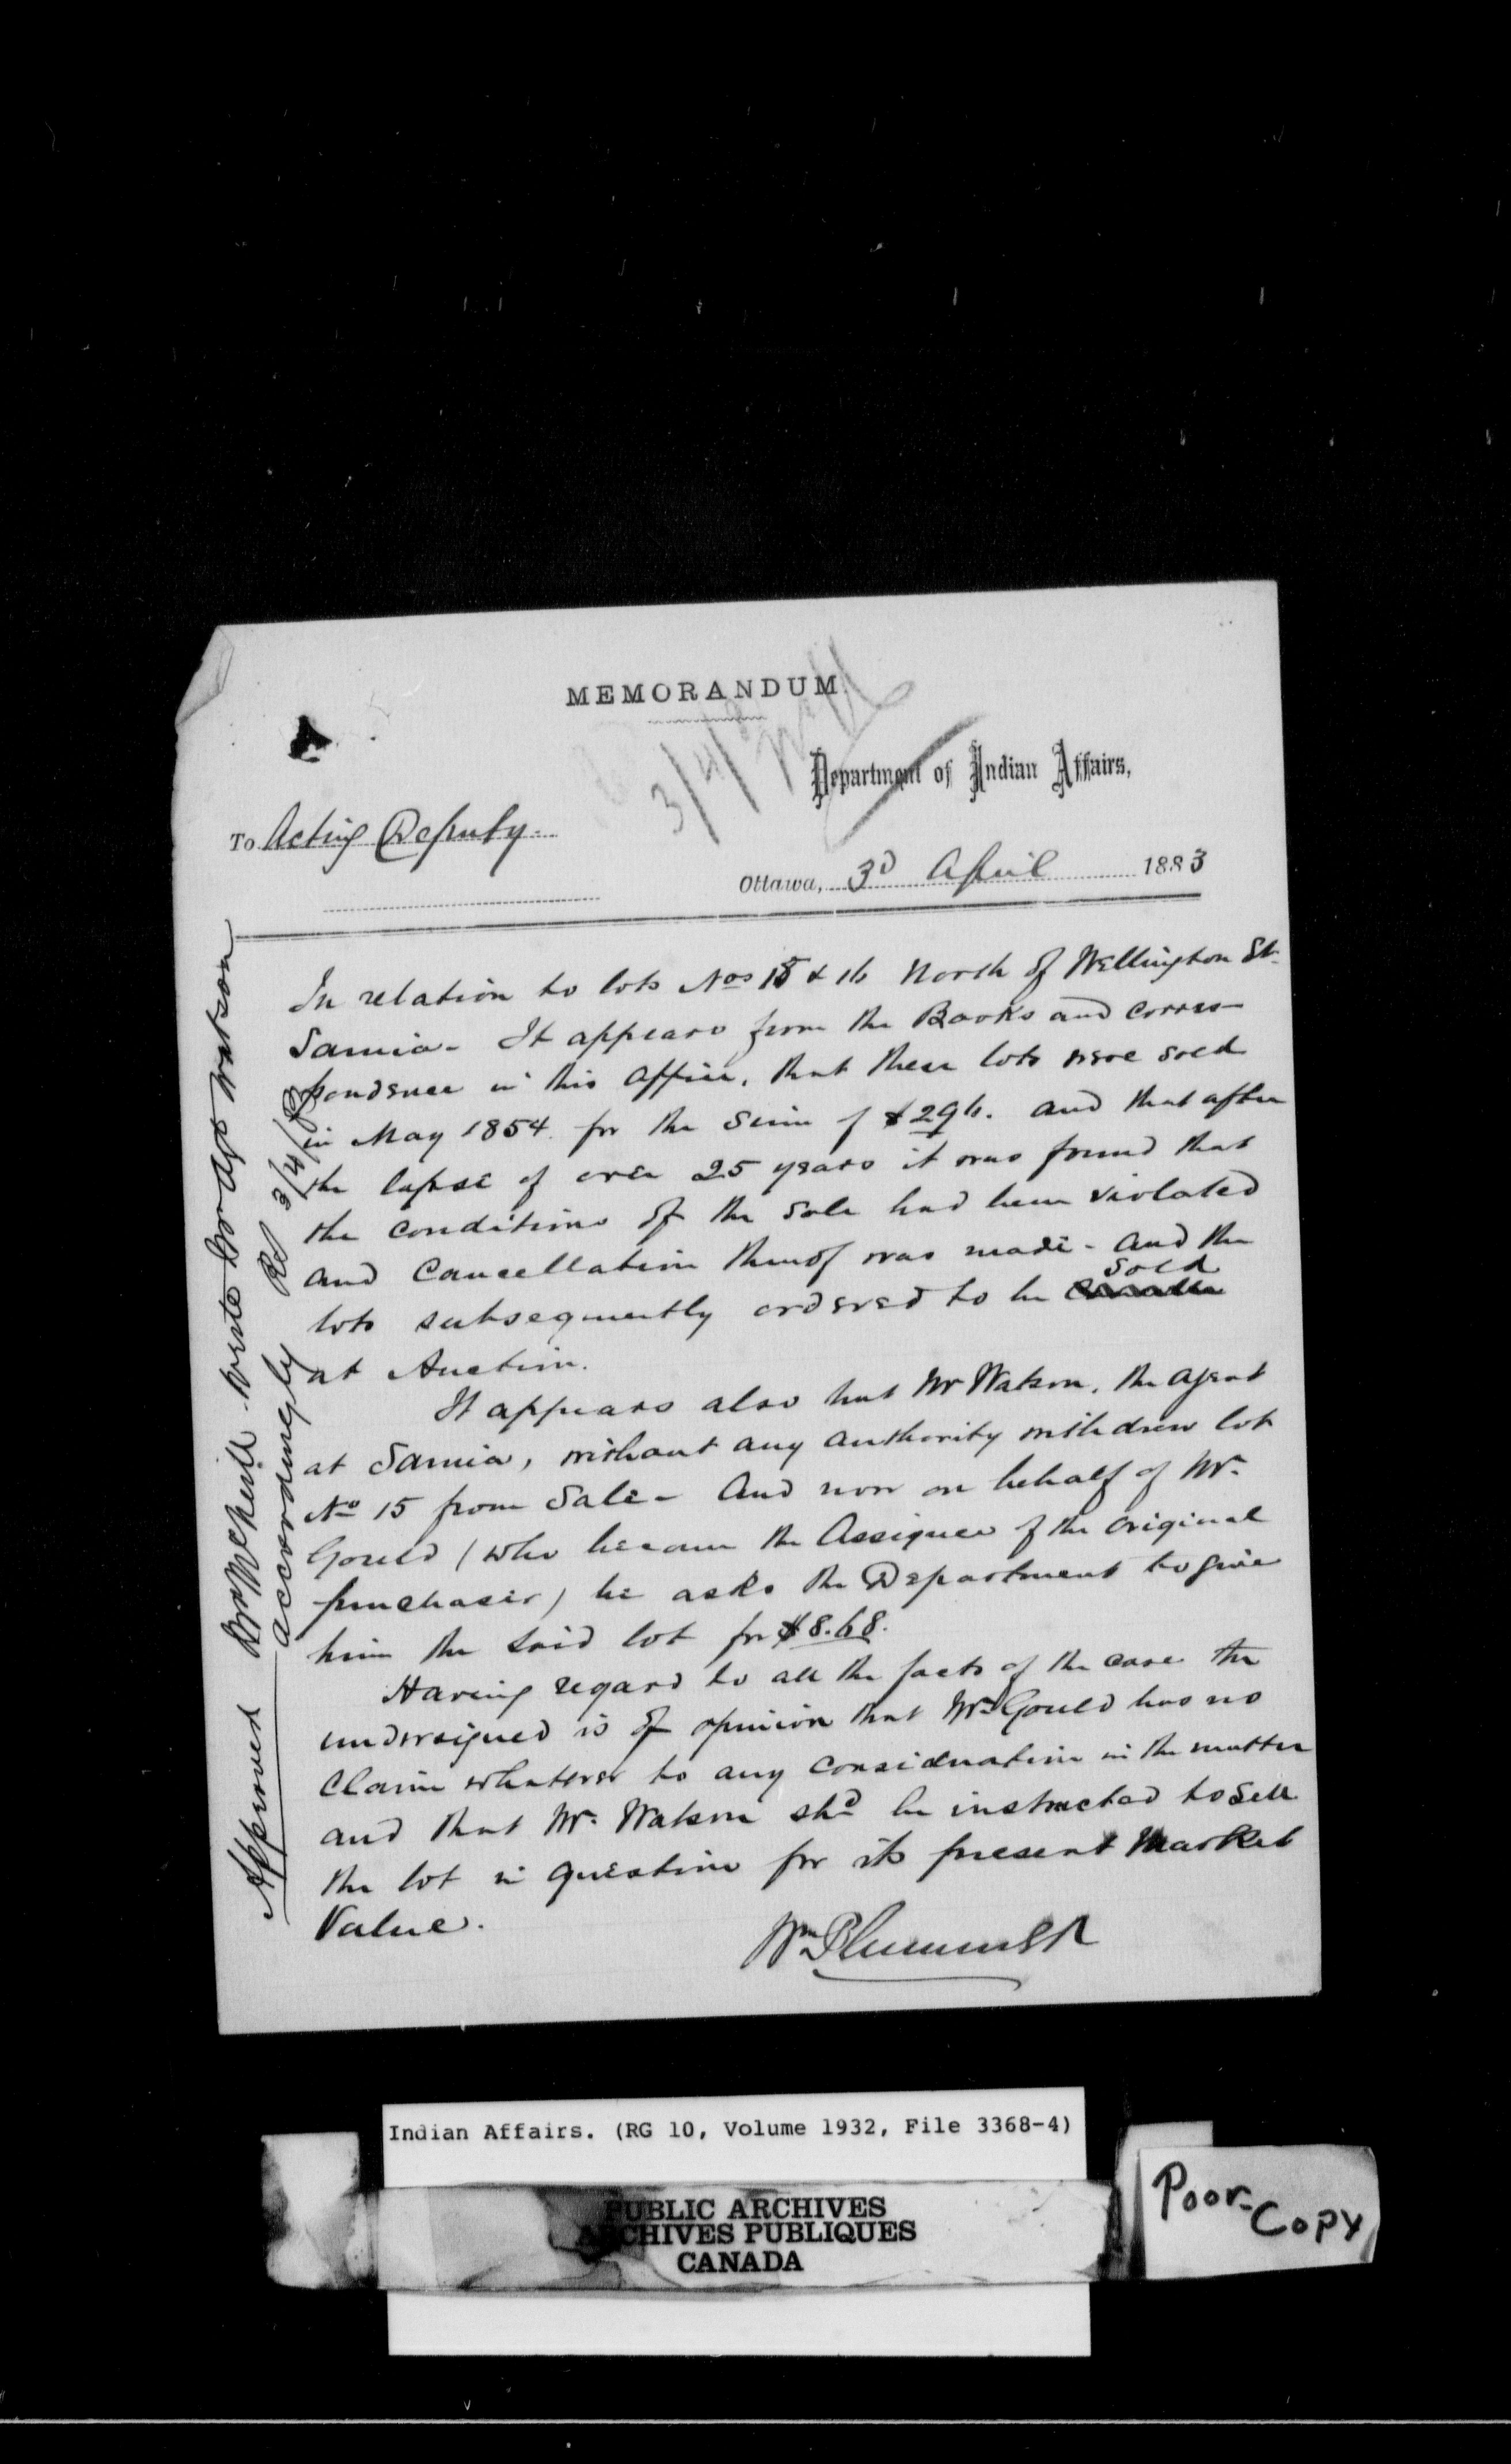 MEMORANDUM.
3/4/83
Department of Indian Affairs,
To Acting Deputy.
Ottawa, 3d April 1883
In relation to lots Nos 15 & 16 North of Wellington St.
Sarnia - It appears from the Books and corres-
pondence in this office, that these lots were sold
in May 1854 for the sum of $296. and that after
the lapse of over 25 years it was found that
the conditions of the sale had been violated
and Cancellation thereof was made - and the
lots subsequently ordered to be sold
at Auction.
It appears also that Mr Watson, the agent
at Sarnia, without any authority withdrew lot
No 15 from Sale - And now on behalf of Mr.
Gould (who became the Assignee of the original
purchaser) he asks the Department to give
him the said lot for $8.68.
Having regard to all the facts of the case the
undersigned is of opinion that Mr Gould has no
Claim whatever to any consideration in the matter
and that Mr. Watson shd be instructed to sell
the lot in question for its present Market
Value.
Wm Plummer
Approved Mr McNeill write to Agt Watson
accordingly 3/4/83
Indian Affairs. (RG 10, Volume 1932, File 3368-4)
PUBLIC ARCHIVES
ARCHIVES PUBLIQUES
CANADA
Poor-
Copy